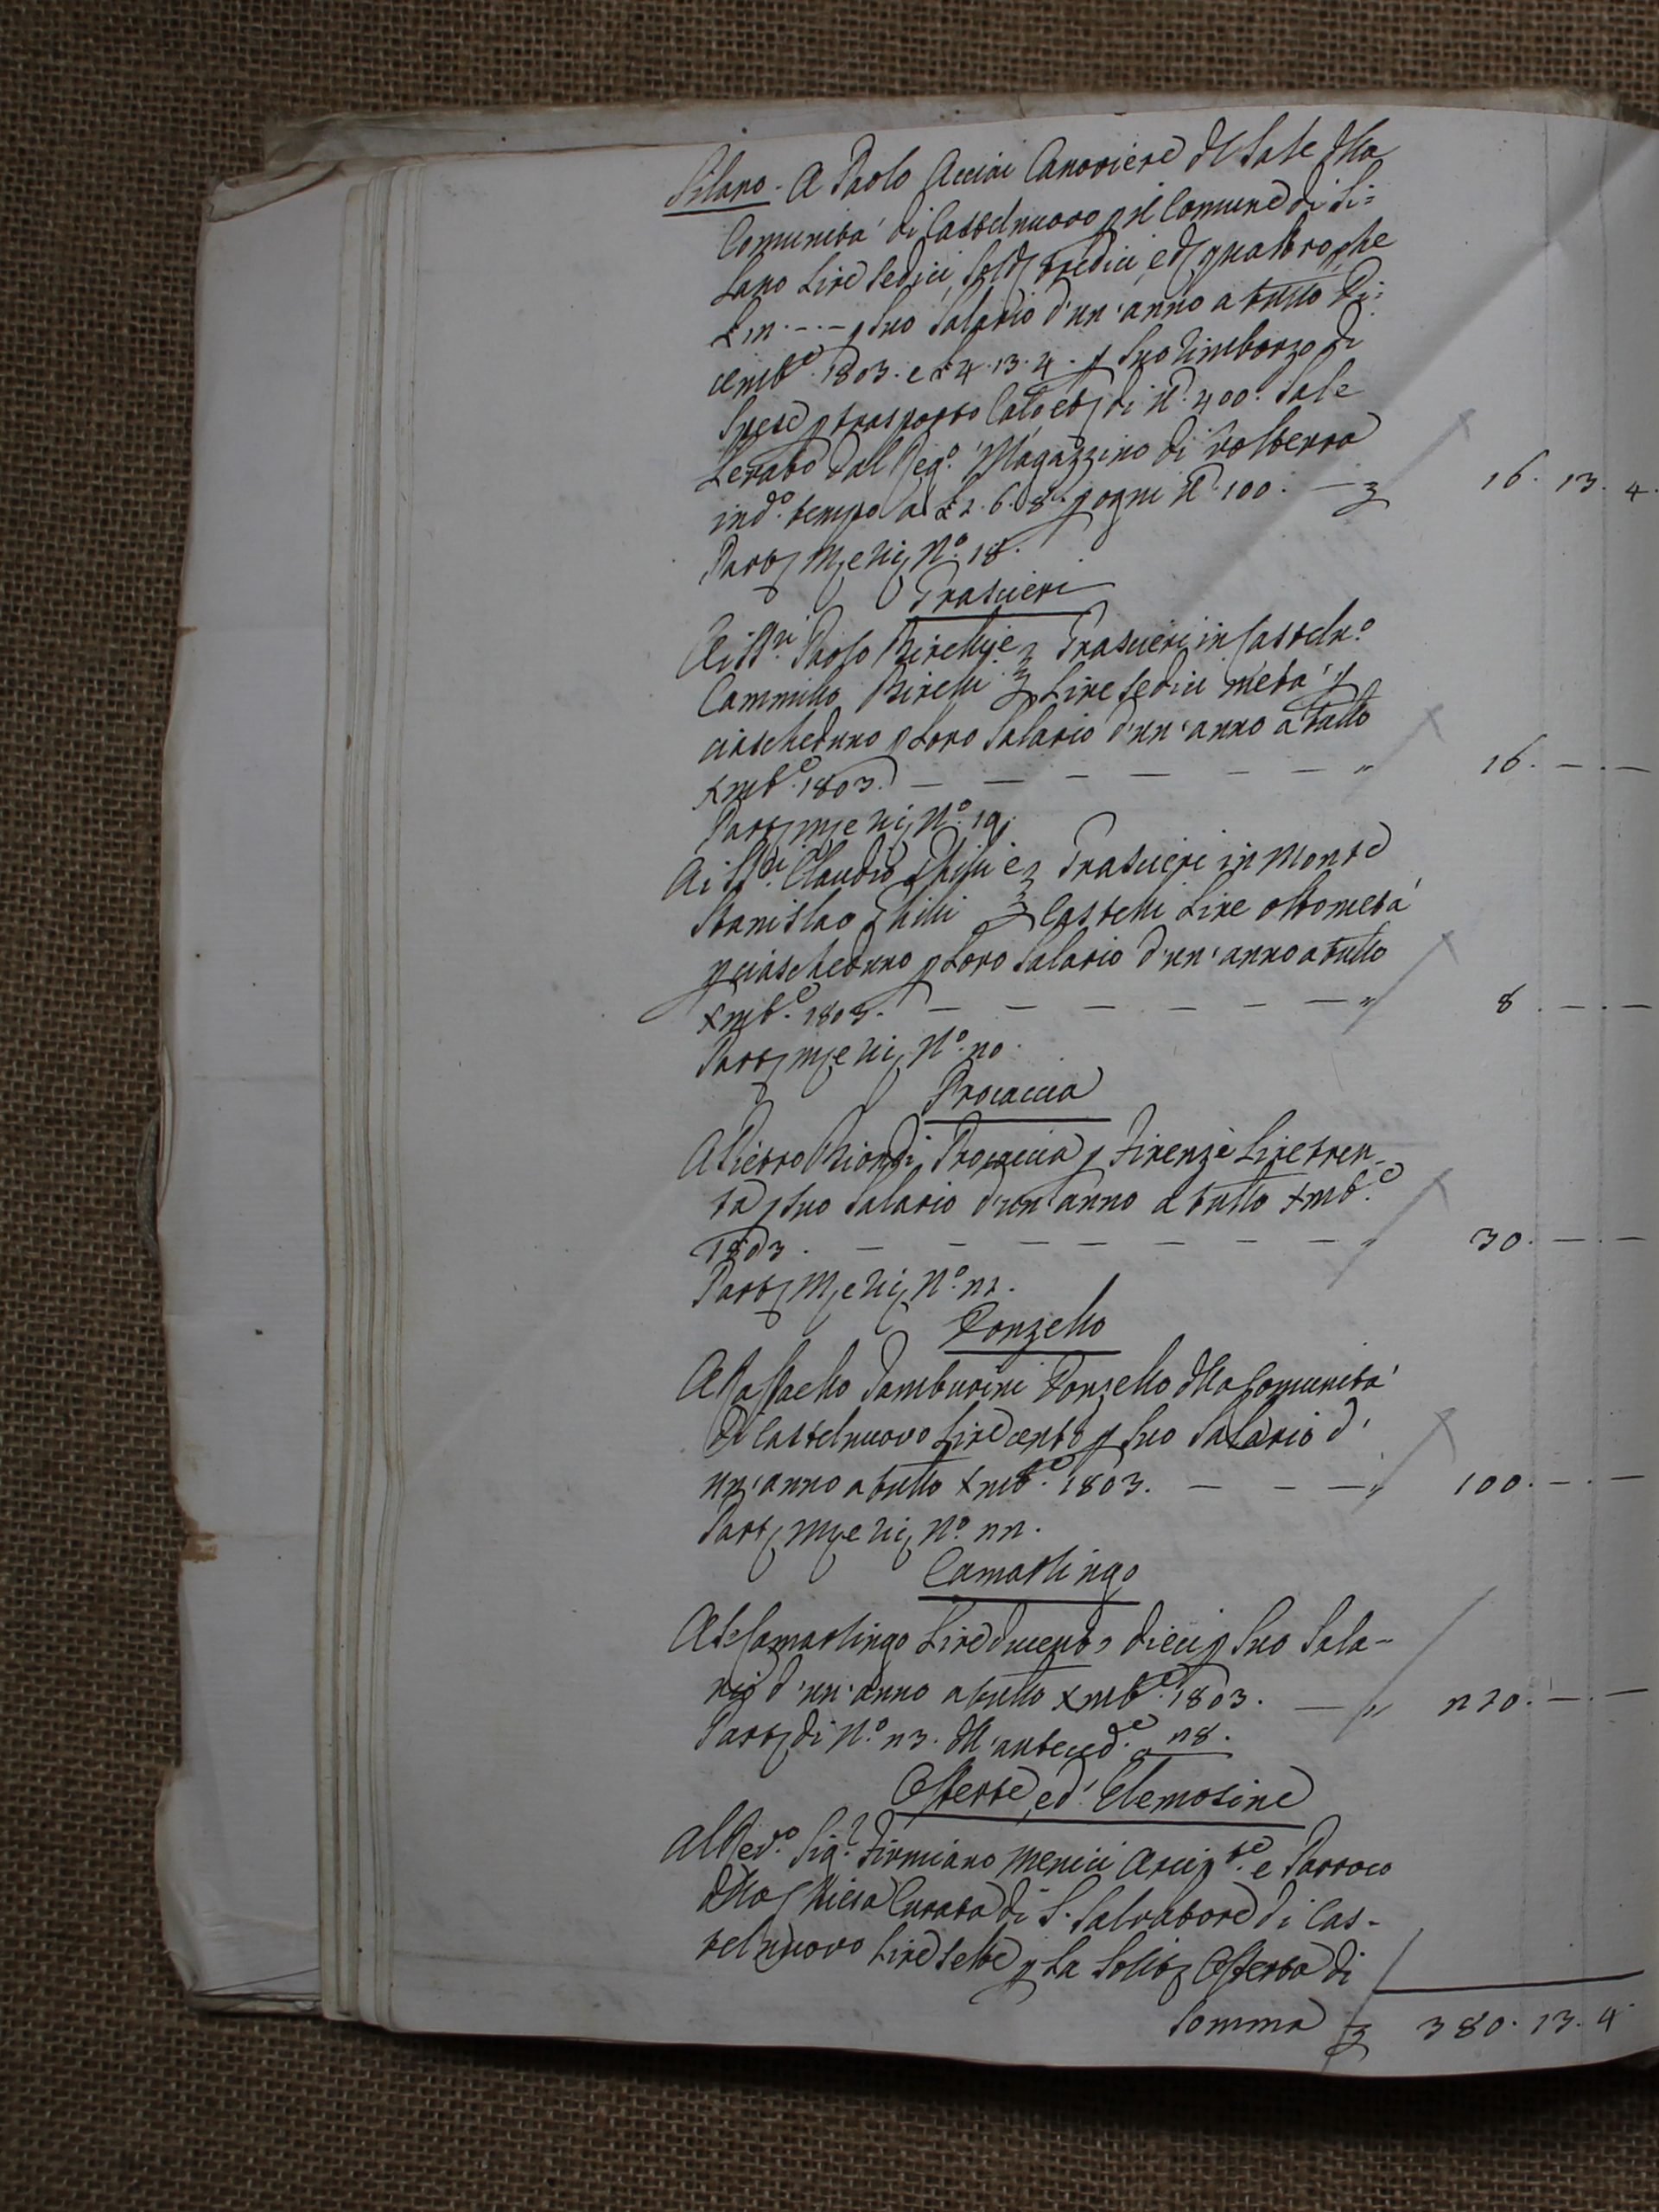 Silano. A Paolo Acciai Canoviere del Sale della
Comunità di Castelnuovo p il Comune di Si=
lano Lire sedici, soldi tredici, e d quattro, che
£ 12. - . - p suo Salario d'un'anno a tutto Di=
cembe. 1803. e £ 4. 13. 4. p suo rimborzo di
Spese p trasporto di lb. 400. Sale
Levato dal Rego. Magazzino di Volterra
in do. tempo a £ 1. 3. 4. p ogni lb. 100. — £ 16. 13. 4.
Part. No. 18.
Grascieri
Ai SSri. Paolo Birelli, e } Grascieri in Casteln.o
Cammillo Birelli } Lire sedici metà p
ciascheduno p Loro Salario d'un'anno a tutto
Xmbe. 1803. — — — — — — " 16. — . —
Part. No. 19.
Ai SSri. Claudio Ghilli e } Grascieri in Monte
Stanislao Ghilli } Castelli Lire otto metà
p ciascheduno p Loro Salario d'un'anno a tutto
Xmbe. 1803. — — — — — — " 8. — . —
Part. No. 20.
Procaccia
A Pietro Biondi Procaccia p Firenze Lire tren-
ta p suo Salario d'un'anno a tutto Xmbe.
1803. — — — — — — — " 30. — . —
Part. No. 21.
Donzello
A Raffaello Tamburini Donzello della Comunità
di Castelnuovo Lire cento p suo Salario d'
un'anno a tutto Xmbe. 1803. — — — " 100. — . —
Part. No. 22.
Camarlingo
Al Camarlingo Lire dugento dieci p suo Sala-
rio d'un'anno a tutto Xmbe. 1803. — " 210. — . —
Part. di No. 23. dell'anteced.e 28.
Offerte, ed' Elemosine
Al Revo. Sigr. Firmiano Menici Arcipte. e Parroco
della Chiesa Curata di S. Salvatore di Cas-
telnuovo Lire sette p La Solita Offerta di
Somma £ 380. 13. 4.